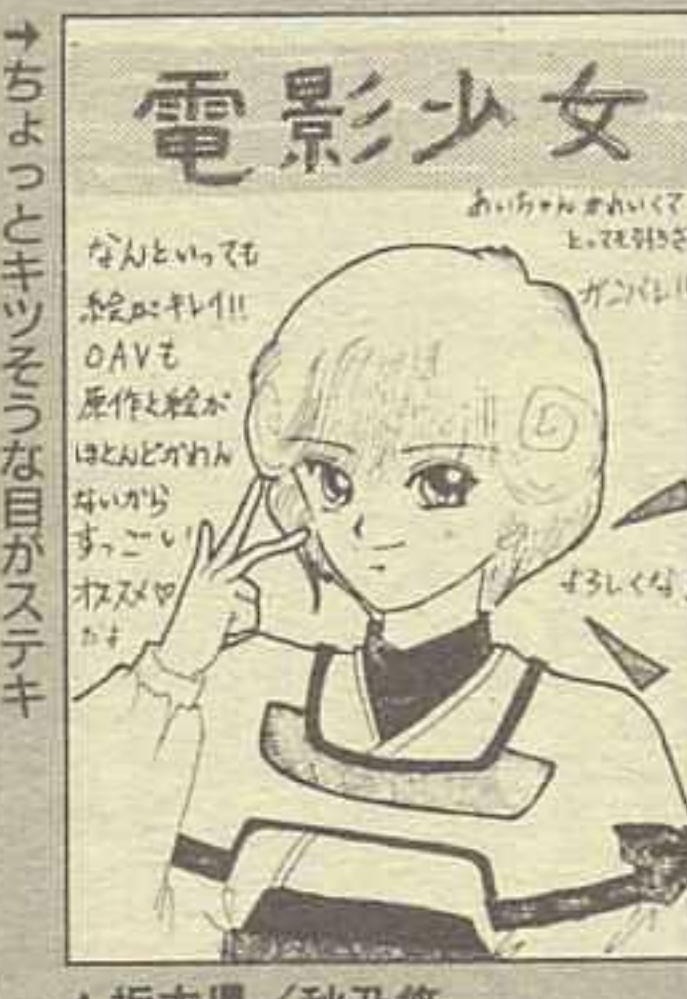 →ちょっとキツそうな目がステキ
電影少女
あいちゃんかわいくて
とっても
ガンバレ!!
なんといっても
絵がキレイ!!
OAVも
原作と絵が
ほとんどかわん
ないから
すっごい
オススメ♡
だよ
よろしくな